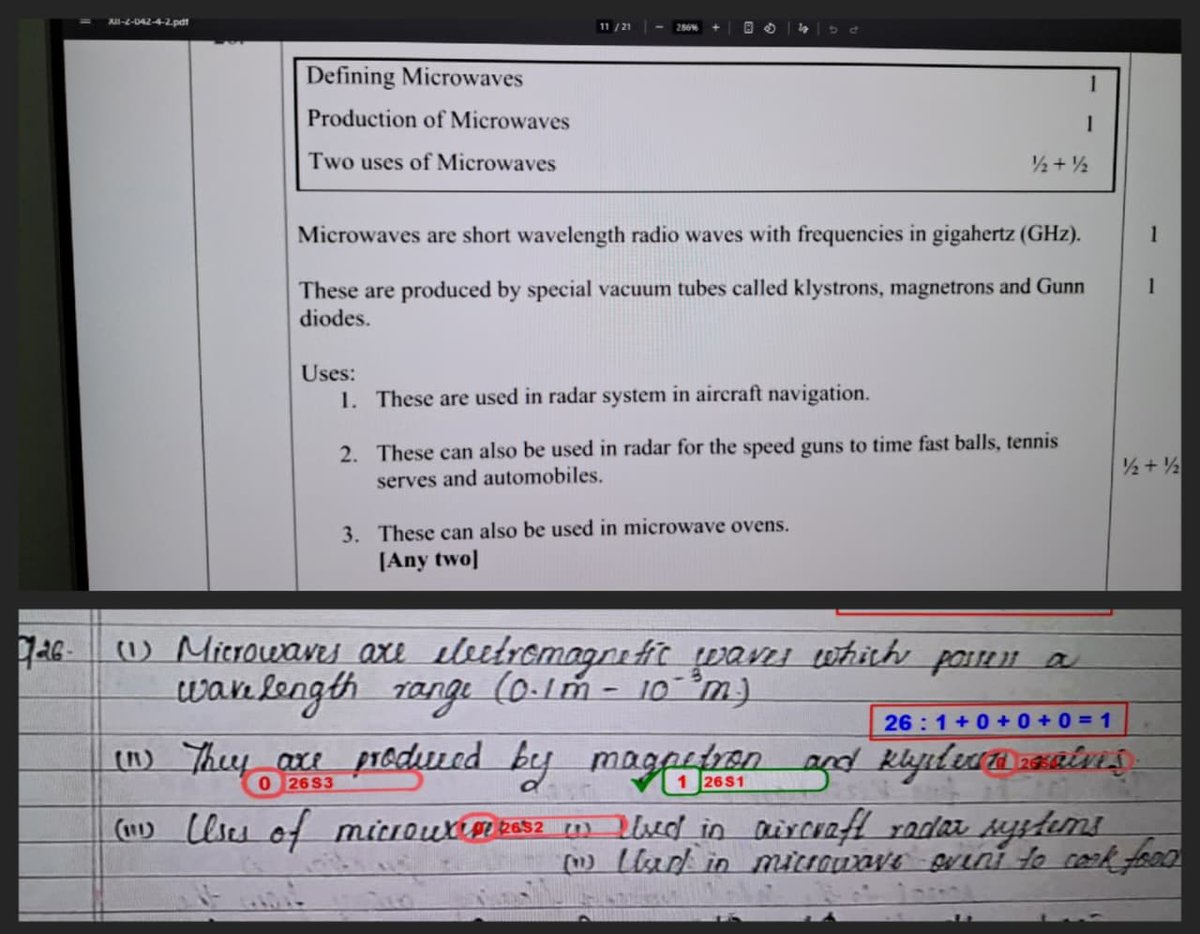 XII-Z-042-4-2.pdf
11 / 21 | − 286% +
Defining Microwaves 1
Production of Microwaves 1
Two uses of Microwaves ½ + ½
Microwaves are short wavelength radio waves with frequencies in gigahertz (GHz). 1
These are produced by special vacuum tubes called klystrons, magnetrons and Gunn 1
diodes.
Uses:
1. These are used in radar system in aircraft navigation.
2. These can also be used in radar for the speed guns to time fast balls, tennis
serves and automobiles.
½ + ½
3. These can also be used in microwave ovens.
[Any two]
(I) Microwaves are electromagnetic waves which possess a
wavelength range (0.1m - 10⁻³m)
26 : 1 + 0 + 0 + 0 = 1
(II) They are produced by magnetron and
0 26S3
1 26S1
(III) Uses of (i) Used in aircraft radar systems
26S2
(ii) Used in microwave ovens to cook food